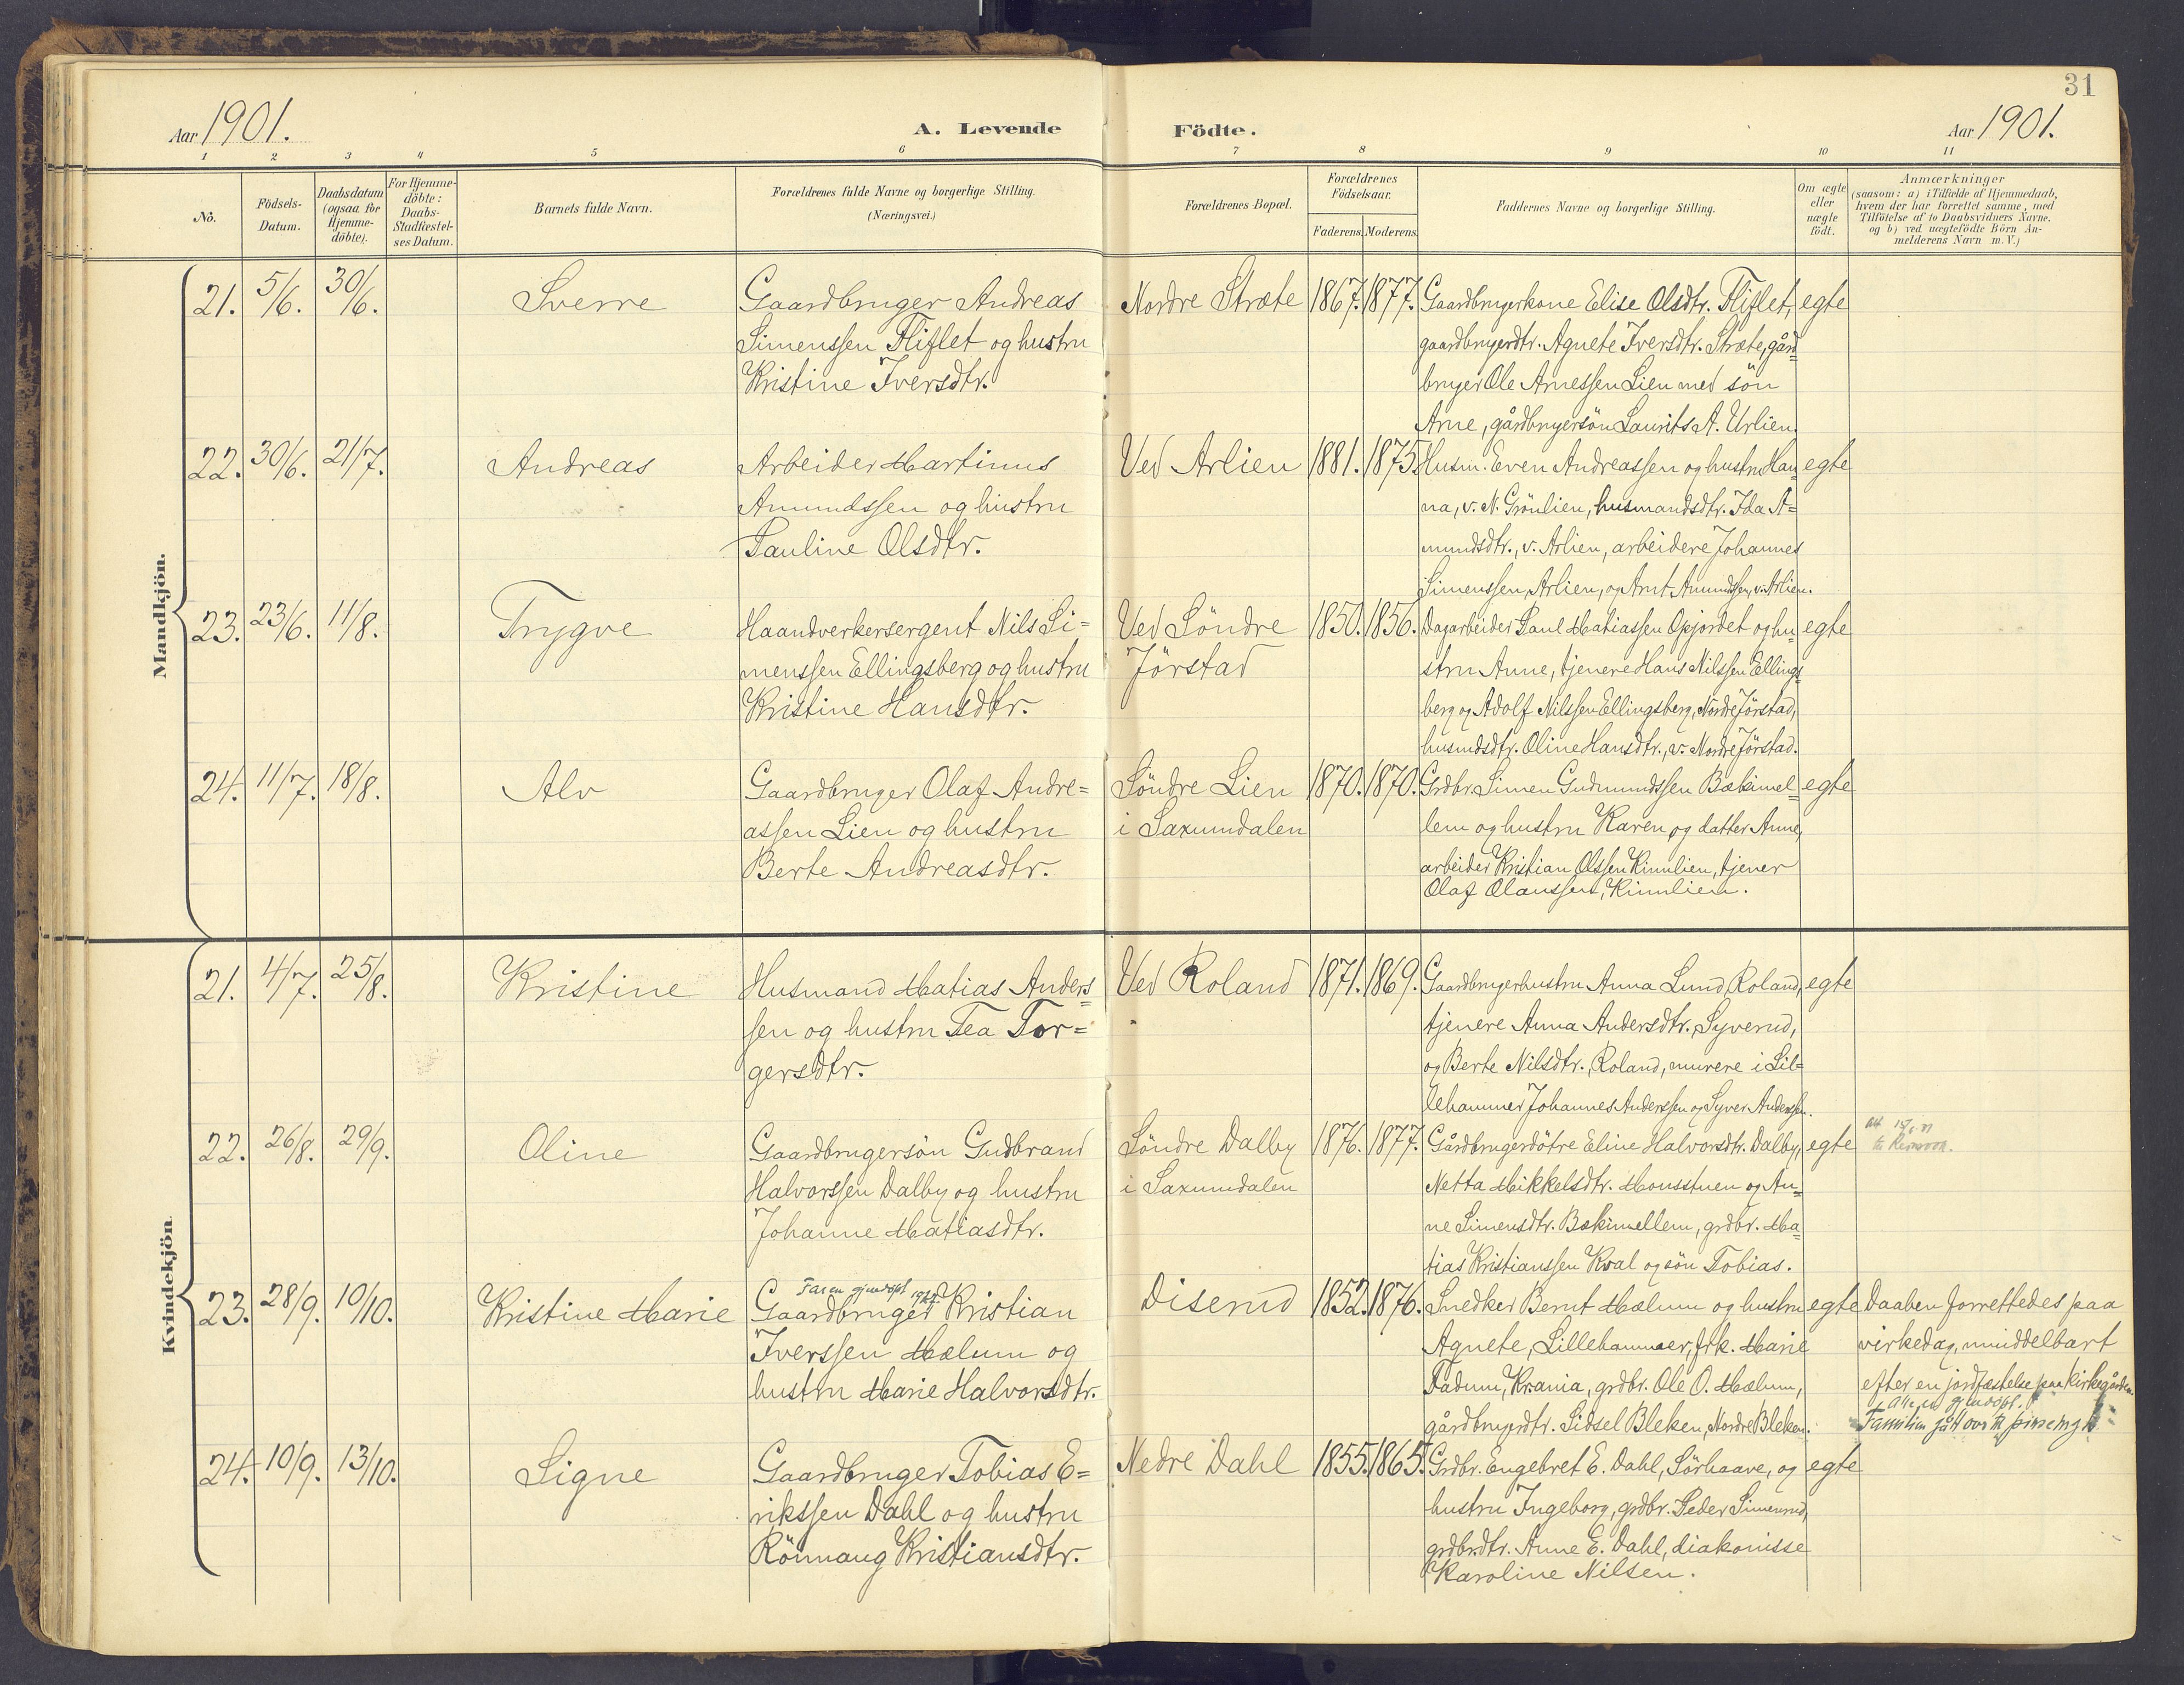 31
Aar 1901.
A. Levende Födte.
Aar 1901.
1 2 3 4 5 6 7 8 9 10 11
No.
Födsels-
Datum.
Daabsdatum
(ogsaa for
Hjemme-
döbte).
For Hjemme-
döbte:
Daabs-
Stadfæstel-
ses Datum.
Barnets fulde Navn.
Forældrenes fulde Navne og borgerlige Stilling.
(Næringsvei.)
Forældrenes Bopæl.
Forældrenes
Födselsaar.
Faderens. Moderens.
Faddernes Navne og borgerlige Stilling.
Om ægte
eller
uægte
födt.
Anmærkninger
(saasom: a) i Tilfælde af Hjemmedaab,
hvem der har forrettet samme, med
Tilföielse af to Daabsvidners Navne,
og b) ved uægtefödte Börn An-
melderens Navn m. V.)
Mandkjön.
21. 5/6. 30/6. Sverre
Gaardbruger Andreas
Simenssen Fliflet og hustru
Kristine Iversdtr.
Nordre Stræte 1867. 1877.
Gaardbrugerkone Elise Olsdtr. Fliflet,
gaardbrugerdtr. Agnete Iversdtr. Stræte, gård=
bruger Ole Arnessen Lien med sön
Arne, gårdbrugersön Laurits A. Urlien.
egte
22. 30/6. 21/7. Andreas
Arbeider Martinus
Amundssen og hustru
Pauline Olsdtr.
Ved Arlien 1881. 1875.
Husm. Even Andreassen og hustru Han
na, v. N. Grönlien, husmandsdtr. Ida A=
mundsdtr., v. Arlien, arbeidere Johannes
Simenssen, Arlien, og Arnt Amundssen, v. Arlien.
egte
23. 23/6. 11/8. Trygve
Haandverkersergent Nils Si=
menssen Ellingsberg og hustru
Kristine Hansdtr.
Ved Söndre
Jörstad
1850. 1856.
Dagarbeider Paul Matiassen Opjordet og hu=
stru Anne, tjenere Hans Nilssen Ellings=
berg og Adolf Nilssen Ellingsberg, Nordre Jörstad,
husmdsdtr. Oline Hansdtr., v. Nordre Jörstad.
egte
24. 11/7. 18/8. Alv
Gaardbruger Olaf Andre=
assen Lien og hustru
Berte Andreasdtr.
Söndre Lien
i Saxumdalen
1870. 1870.
Grdbr. Simen Gudmundssen Bækimel=
lem og hustru Karen og datter Anne,
arbeider Kristian Olssen Kinnlien, tjener
Olaf Olaussen, Kinnlien.
egte
Kvindekjön.
21. 4/7. 25/8. Kristine
Husmand Matias Anders=
sen og hustru Tea Tor=
gersdtr.
Ved Roland 1871. 1869.
Gaardbrugerhustru Anna Lund, Roland,
tjenere Anna Andersdtr. Syverud,
og Berte Nilsdtr., Roland, murere i Lil=
lehammer Johannes Anderssen og Syver Anderssen.
egte
22. 26/8. 29/9. Oline
Gaardbrugersön Gudbrand
Halvorssen Dalby og hustru
Johanne Matiasdtr.
Söndre Dalby
i Saxumdalen
1876. 1877.
Gårdbrugerdötre Eline Halvorsdtr. Dalby,
Netta Mikkelsdtr. Monsstuen og An=
ne Simensdtr. Bækimellem, grdbr. Ma=
tias Kristianssen Kval og sön Tobias.
egte
23. 28/9. 10/10. Kristine Marie
Gaardbruger Kristian
Iverssen Mælum og
hustru Marie Halvorsdtr.
Diserud 1852. 1876.
Snedker Bernt Mælum og hustru
Agnete, Lillehammer, frk. Marie
Dadum, Kr.ania, grdbr. Ole O. Mælum,
gårdbrugerdtr. Sidsel Bleken, Nordre Bleken.
egte
Daaben forrettedes paa
virkedag, umiddelbart
efter en jordfæstelse paa kirkegården.
24. 10/9. 13/10. Signe
Gaardbruger Tobias E=
rikssen Dahl og hustru
Rönnaug Kristiansdtr.
Nedre Dahl 1855. 1865.
Grdbr. Engebret E. Dahl, Sörhaave, og
hustru Ingeborg, grdbr. Peder Simenrud,
grdbr.dtr. Anne E. Dahl, diakonisse
Karoline Nilsen.
egte